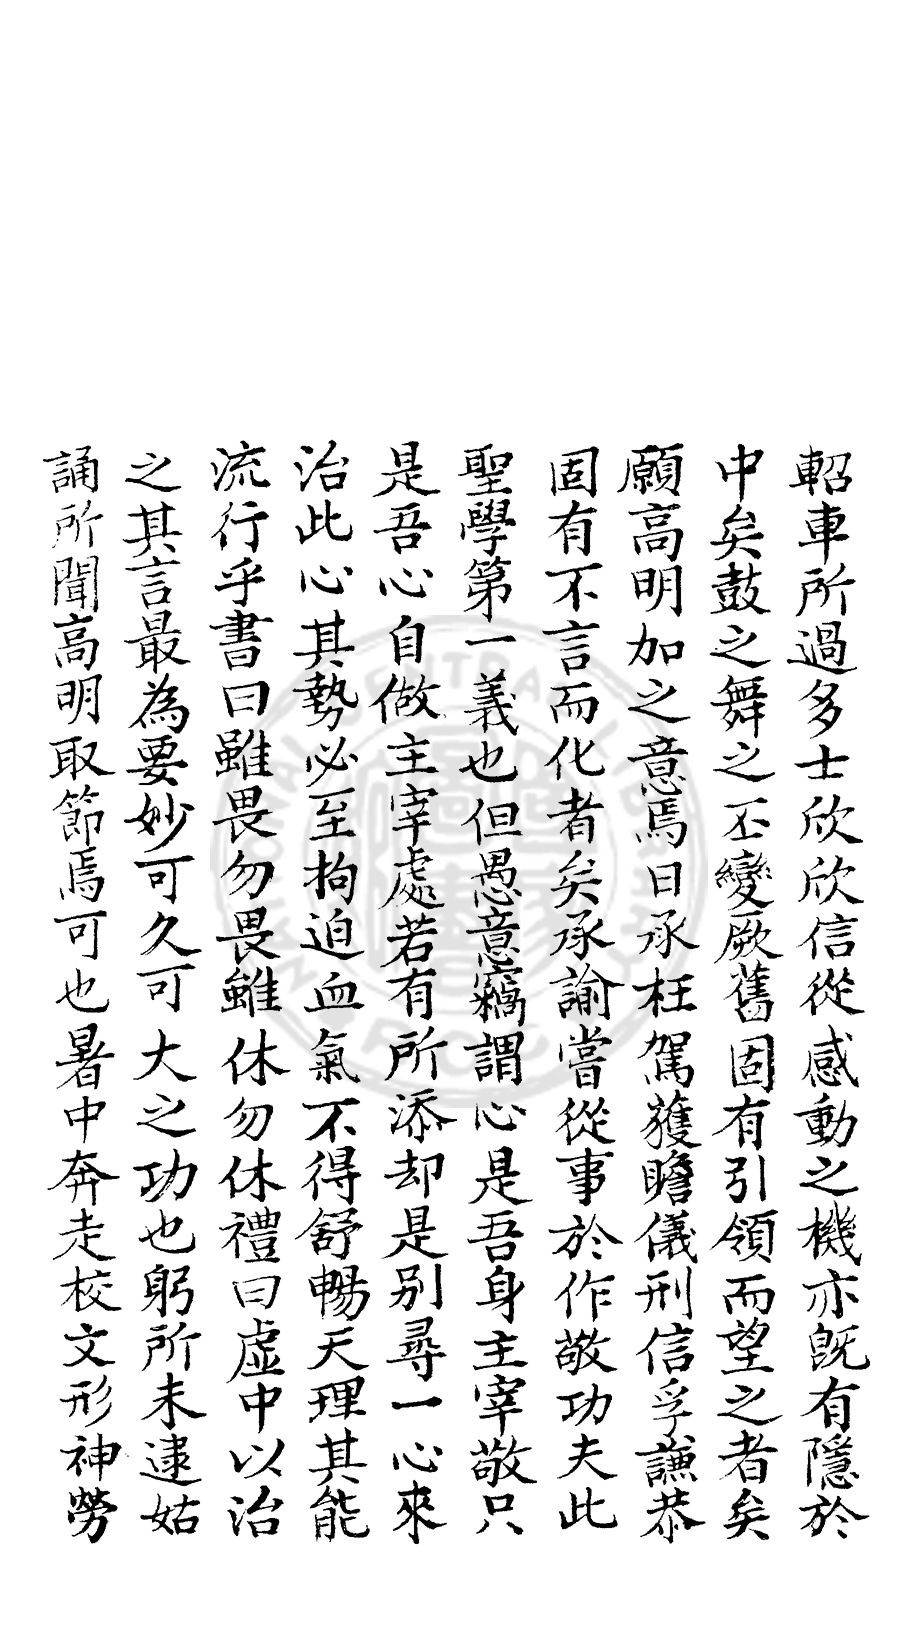 軺車所過多士欣欣信從感動之機亦既有隱於
中矣鼓之舞之丕變厥舊固有引領而望之者矣
願高明加之意焉日承枉駕獲瞻儀刑信孚謙恭
固有不言而化者矣承諭嘗從事於作敬功夫此
聖學第一義也但愚意竊謂心是吾身主宰敬只
是吾心自做主宰處若有所添却是別尋一心來
治此心其勢必至拘迫血氣不得舒暢天理其能
流行乎書曰雖畏勿畏雖休勿休禮曰虛中以治
之其言最為要妙可久可大之功也躬所未逮姑
誦所聞高明取節焉可也暑中奔走校文形神勞